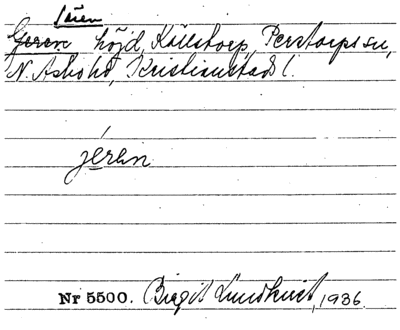 Jären
Geren höjd, Källstorp, Perstorps sn,
N. Åsbo hd, Kristianstads l.
jerın
Nr 5500. Birgit Lundkvist, 1936.